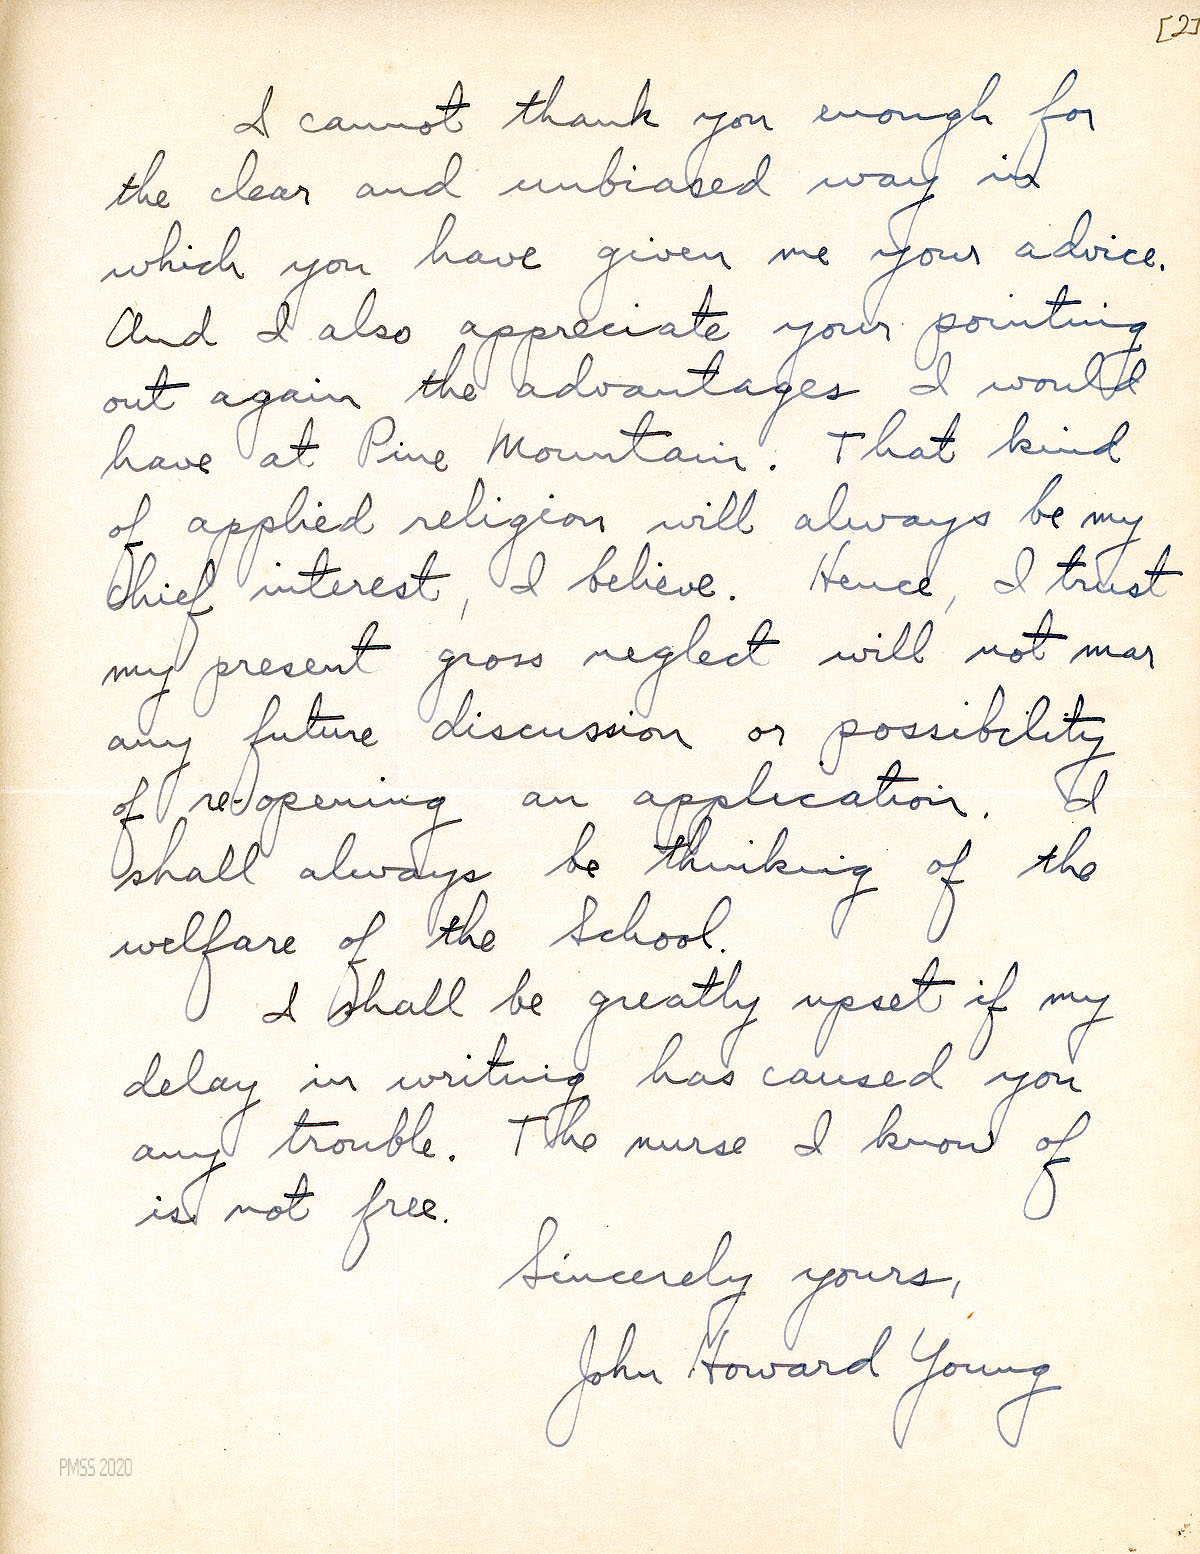 [2]
I cannot thank you enough for
the clear and unbiased way in
which you have given me your advice.
And I also appreciate your pointing
out again the advantages I would
have at Pine Mountain. That kind
of applied religion will always be my
chief interest, I believe. Hence, I trust
my present gross neglect will not mar
any future discussion or possibility
of re-opening an application. I
shall always be thinking of the
welfare of the School.
I shall be greatly upset if my
delay in writing has caused you
any trouble. The nurse I know of
is not free.
Sincerely yours,
John Howard Young
PMSS 2020